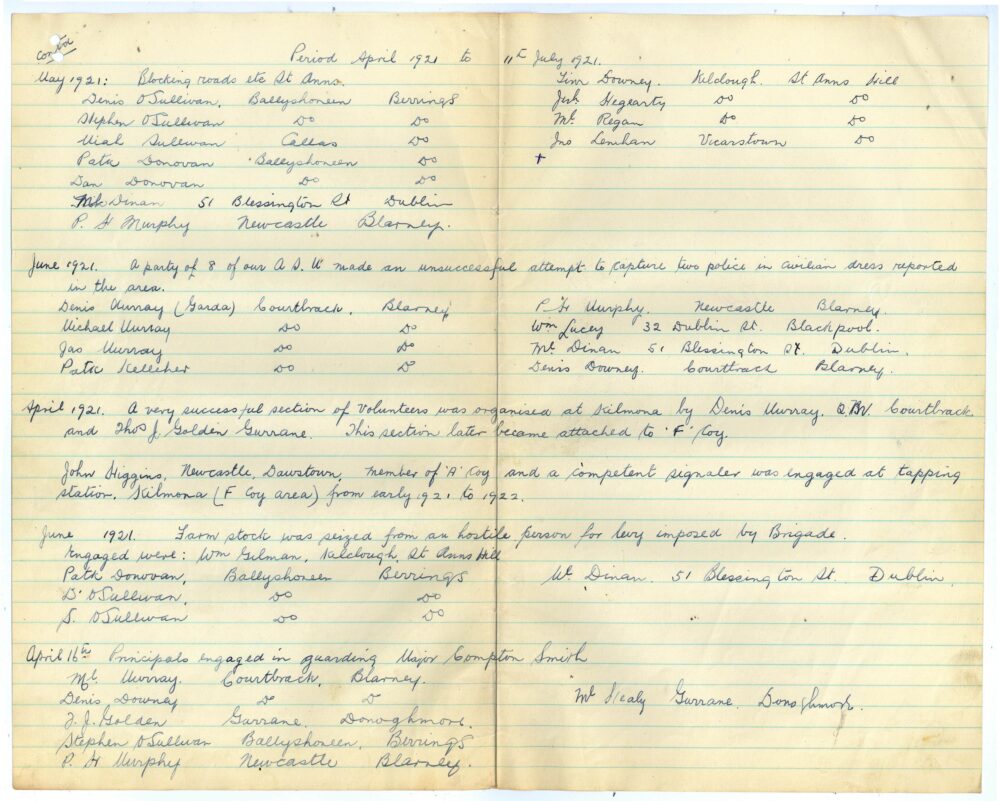 Contd
Period April 1921 to 11th July 1921.
May 1921: Blocking roads etc St Anns.
Denis O'Sullivan, Ballyshoneen Berrings
Stephen O'Sullivan Do Do
Mial Sullivan Callas Do
Patk Donovan Ballyshoneen Do
Dan Donovan Do Do
Mk Dinan 51 Blessington St Dublin
P. H Murphy Newcastle Blarney.
Timr Downey. Kilclough. St Anns Hill
Jerh Hegearty Do Do
Ml. Regan Do Do
Jno Lenihan Vicarstown Do
+
June 1921. A party of 8 of our A.S.U made an unsuccessful attempt to capture two police in civilian dress reported
in the area.
Denis Murray (Garda) Courtbrack. Blarney
Michael Murray Do Do
Jas Murray Do Do
Patk Kelleher Do D
P. H Murphy. Newcastle Blarney.
Wm Lucey 32 Dublin St. Blackpool.
Ml. Dinan 51 Blessington St. Dublin.
Denis Downey. Courtbrack Blarney.
April 1921. A very successful section of Volunteers was organised at Kilmona by Denis Murray, Courtbrack
and Thos J. Golden Gurrane. This section later became attached to 'F' Coy.
John Higgins, Newcastle, Dawstown, member of 'A' Coy and a competent signaler was engaged at tapping
station, Kilmona (F Coy area) from early 1921 to 1922.
June 1921. Farm stock was seized from an hostile person for levy imposed by Brigade.
Engaged were: Wm Gilman, Kilclough, St Anns Hill
Patk Donovan, Ballyshoneen Berrings
D. O'Sullivan, Do Do
S. O'Sullivan Do Do
Ml. Dinan. 51 Blessington St. Dublin.
April 16th Principals engaged in guarding Major Compton Smith
Ml. Murray. Courtbrack, Blarney.
Denis Downey D D
T. J. Golden Gurrane. Donoghmore.
Stephen O'Sullivan Ballyshoneen, Berrings
P. H Murphy Newcastle Blarney.
Ml Healy Gurrane. Donoghmore.